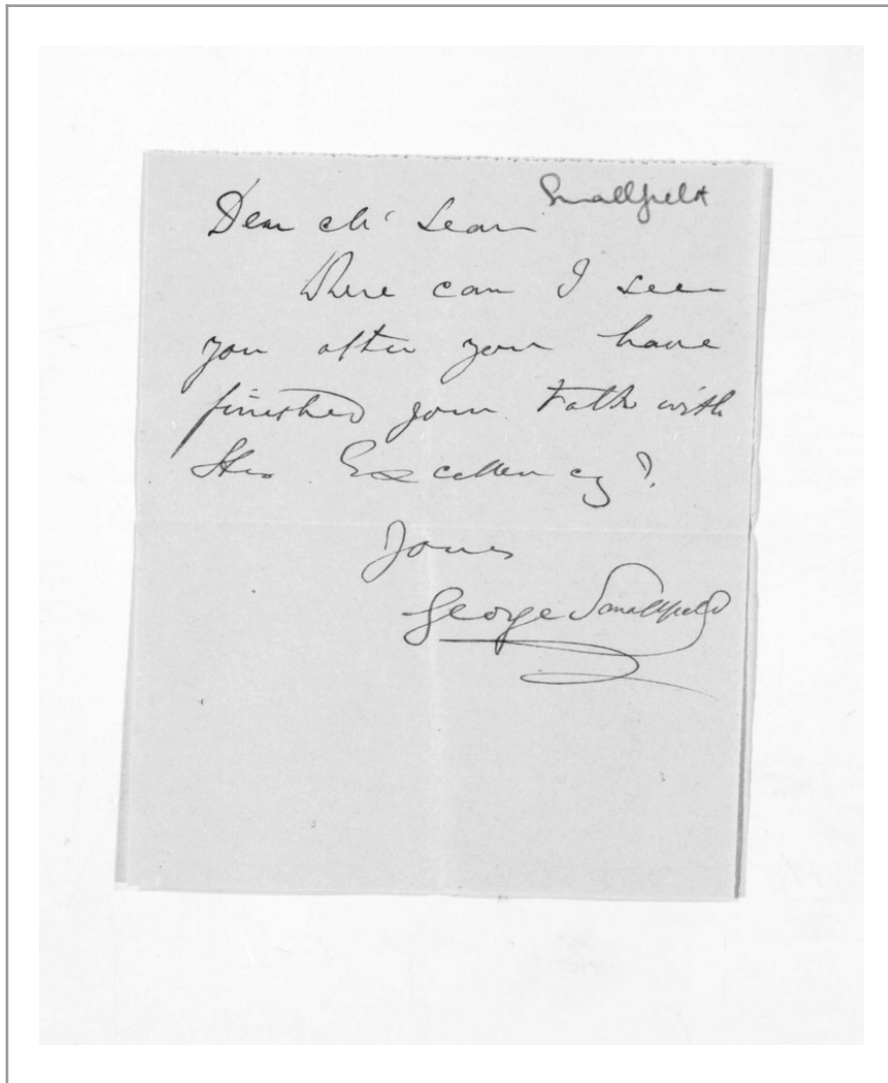 Smallfield
Dear McLean
Where can I see
you after you have
finished your Talk with
His Excellency?
Yours
George Smallfield